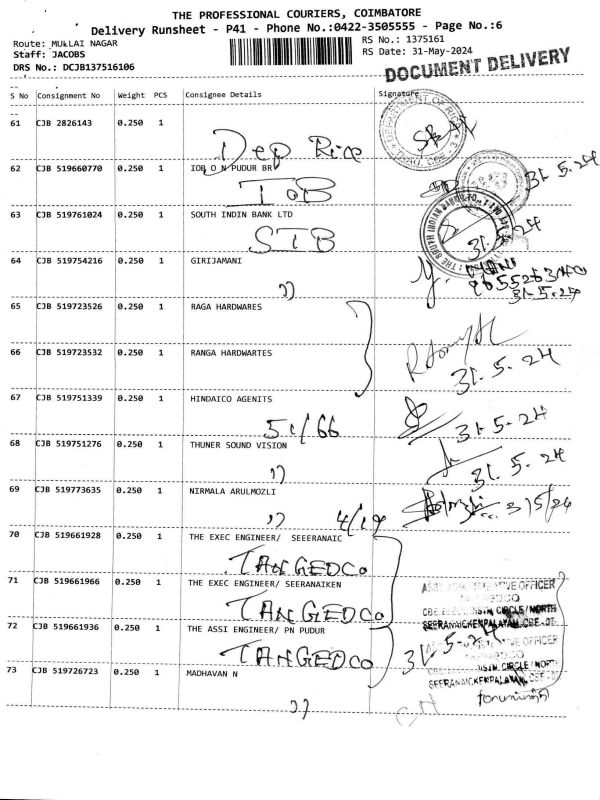 THE PROFESSIONAL COURIERS, COIMBATORE
Delivery Runsheet - P41 - Phone No.:0422-3505555 - Page No.:6
Route: MULLAI NAGAR
RS No.: 1375161
Staff: JACOBS
RS Date: 31-May-2024
DRS No.: DCJB137516106
DOCUMENT DELIVERY
S No Consignment No Weight PCS Consignee Details Signature
61 CJB 2826143 0.250 1
Dep Rice
62 CJB 519660770 0.250 1 IOB O N PUDUR BR
IOB
31-5-24
63 CJB 519761024 0.250 1 SOUTH INDIN BANK LTD
SIB
31-5-24
64 CJB 519754216 0.250 1 GIRIJAMANI
31-5-24
65 CJB 519723526 0.250 1 RAGA HARDWARES
66 CJB 519723532 0.250 1 RANGA HARDWARTES
31-5-24
67 CJB 519751339 0.250 1 HINDAICO AGENITS
31-5-24
68 CJB 519751276 0.250 1 THUNER SOUND VISION
31-5-24
69 CJB 519773635 0.250 1 NIRMALA ARULMOZLI
4/19
31/5/24
70 CJB 519661928 0.250 1 THE EXEC ENGINEER/ SEEERANAIC
TANGEDCo
71 CJB 519661966 0.250 1 THE EXEC ENGINEER/ SEERANAIKEN
TANGEDCo
72 CJB 519661936 0.250 1 THE ASSI ENGINEER/ PN PUDUR
TANGEDCo
31-5-24
SEERANAICKENPALAYAM, CBE - 07.
73 CJB 519726723 0.250 1 MADHAVAN N